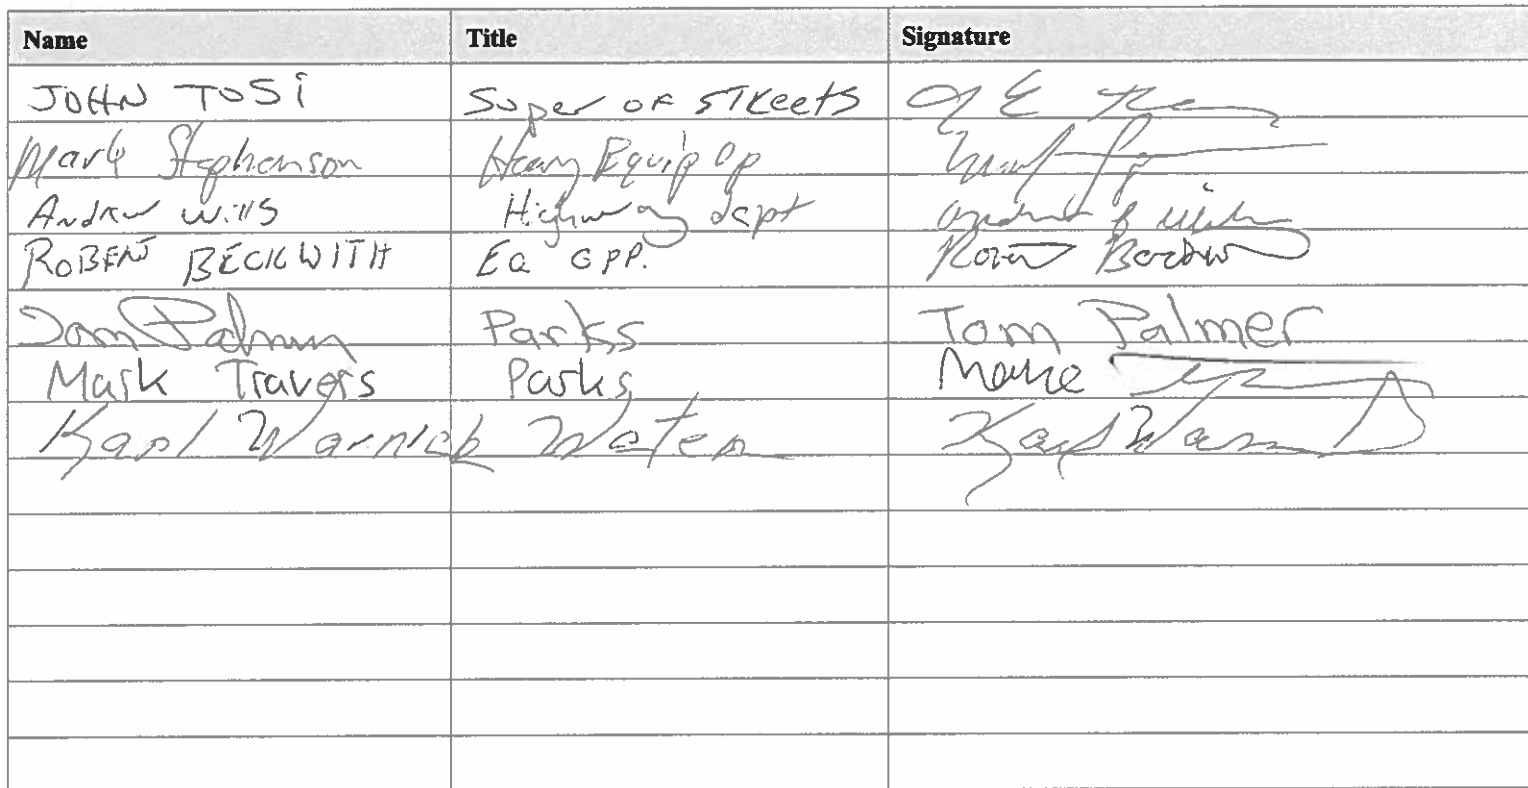 Name Title Signature
JOHN TOSI Super OF STREETS
Mark Stephenson Heavy Equip Op
Andrew Wills Highway dept
ROBERT BECKWITH EQ OPP.
Tom Palmer Parks Tom Palmer
Mark Travers Parks
Karl Warnick Water